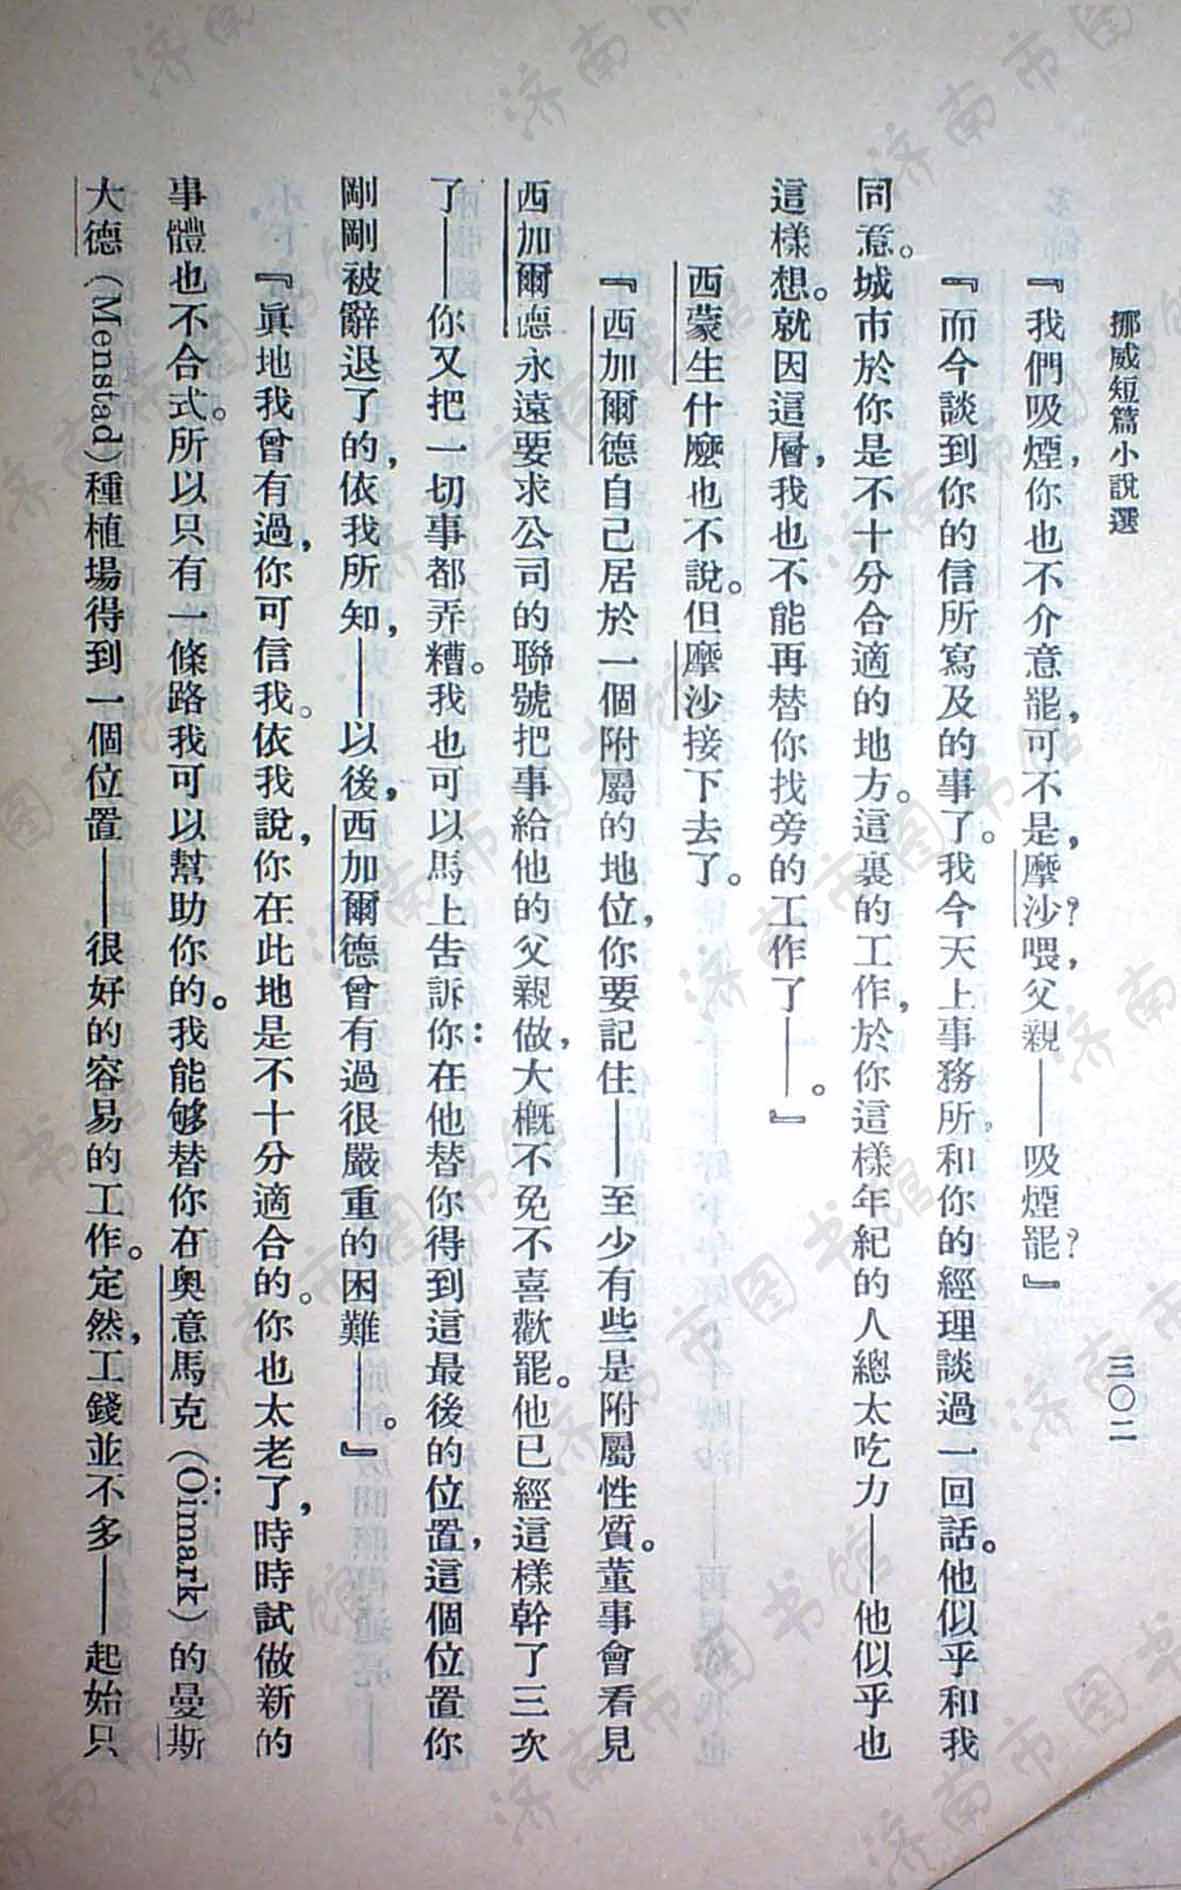 挪威短篇小說選
三〇二
『我們吸煙，你也不介意罷，可不是，摩沙？喂，父親——吸煙罷？』
『而今談到你的信所寫及的事了。我今天上事務所，和你的經理談過一回話。他似乎和我
同意。城市於你是不十分合適的地方。這裏的工作，於你這樣年紀的人總太吃力——他似乎也
這樣想。就因這層，我也不能再替你找旁的工作了——。』
西蒙生什麼也不說。但摩沙接下去了。
『西加爾德自己居於一個附屬的地位，你要記住——至少有些是附屬性質。董事會看見
西加爾德永遠要求公司的聯號把事給他的父親做，大概不免不喜歡罷。他已經這樣幹了三次
了——你又把一切事都弄糟。我也可以馬上告訴你：在他替你得到這最後的位置，這個位置你
剛剛被辭退了的，依我所知，——以後，西加爾德曾有過很嚴重的困難——。』
『眞地我曾有過，你可信我。依我說，你在此地是不十分適合的。你也太老了，時時試做新的
事體也不合式。所以只有一條路我可以幫助你的。我能够替你在奧意馬克(Öimark)的曼斯
大德(Menstad)種植場得到一個位置——很好的容易的工作。定然，工錢並不多——起始只
济南市图书馆